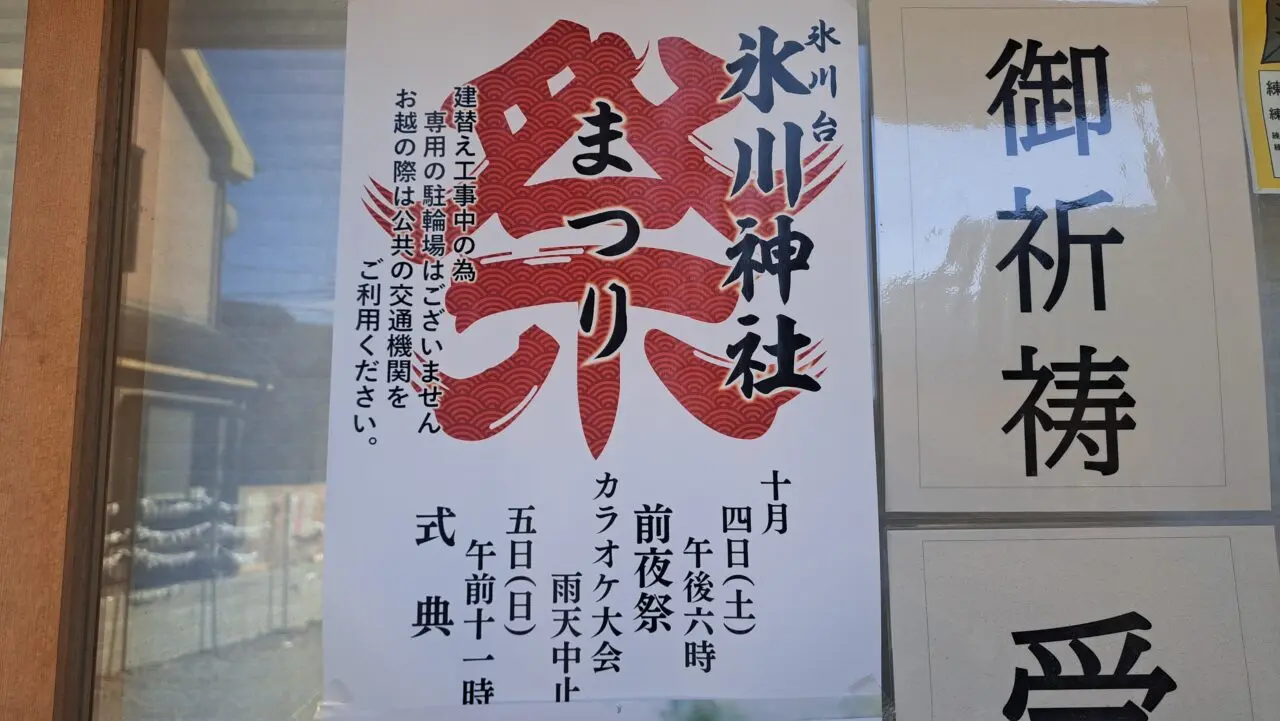 氷川台
氷川神社
祭
まつり
建替え工事中の為
専用の駐輪場はございません
お越の際は公共の交通機関を
ご利用ください。
十月
四日(土)
午後六時
前夜祭
カラオケ大会
雨天中止
五日(日)
午前十一時
式典
御祈祷
受
練